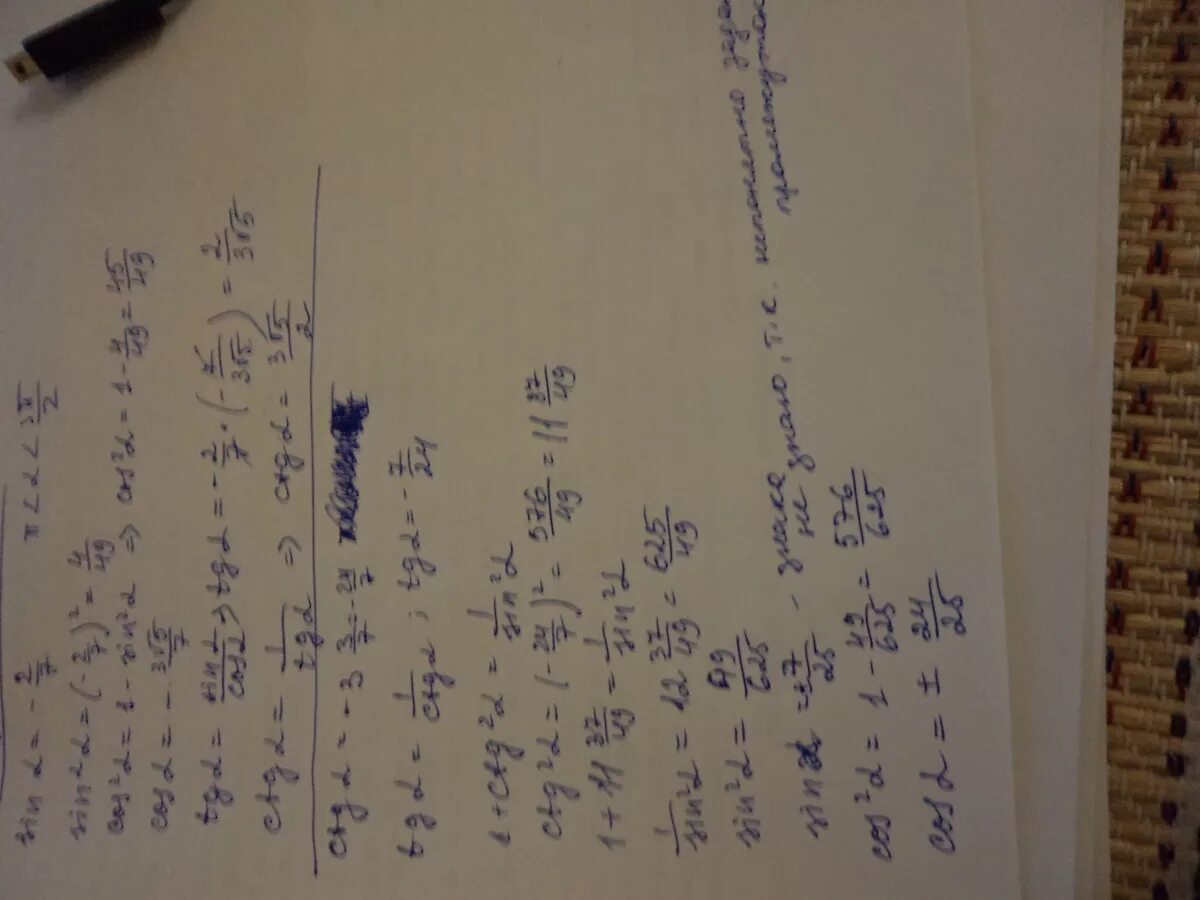 sin α = -2/7   π < α < 3π/2
sin²α = (-2/7)² = 4/49
cos²α = 1 - sin²α => cos²α = 1 - 4/49 = 45/49
cos α = -3√5/7
tg α = sin α/cos α => tg α = -2/7 · (-7/3√5) = 2/3√5
ctg α = 1/tg α => ctg α = 3√5/2
ctg α = -3 3/7 = -24/7
tg α = 1/ctg α ; tg α = -7/24
1 + ctg²α = 1/sin²α
ctg²α = (-24/7)² = 576/49 = 11 37/49
1 + 11 37/49 = 1/sin²α
1/sin²α = 12 37/49 = 625/49
sin²α = 49/625
sin α = ±7/25 - знака не знаю, т.к. непонятно
cos²α = 1 - 49/625 = 576/625
cos α = ± 24/25